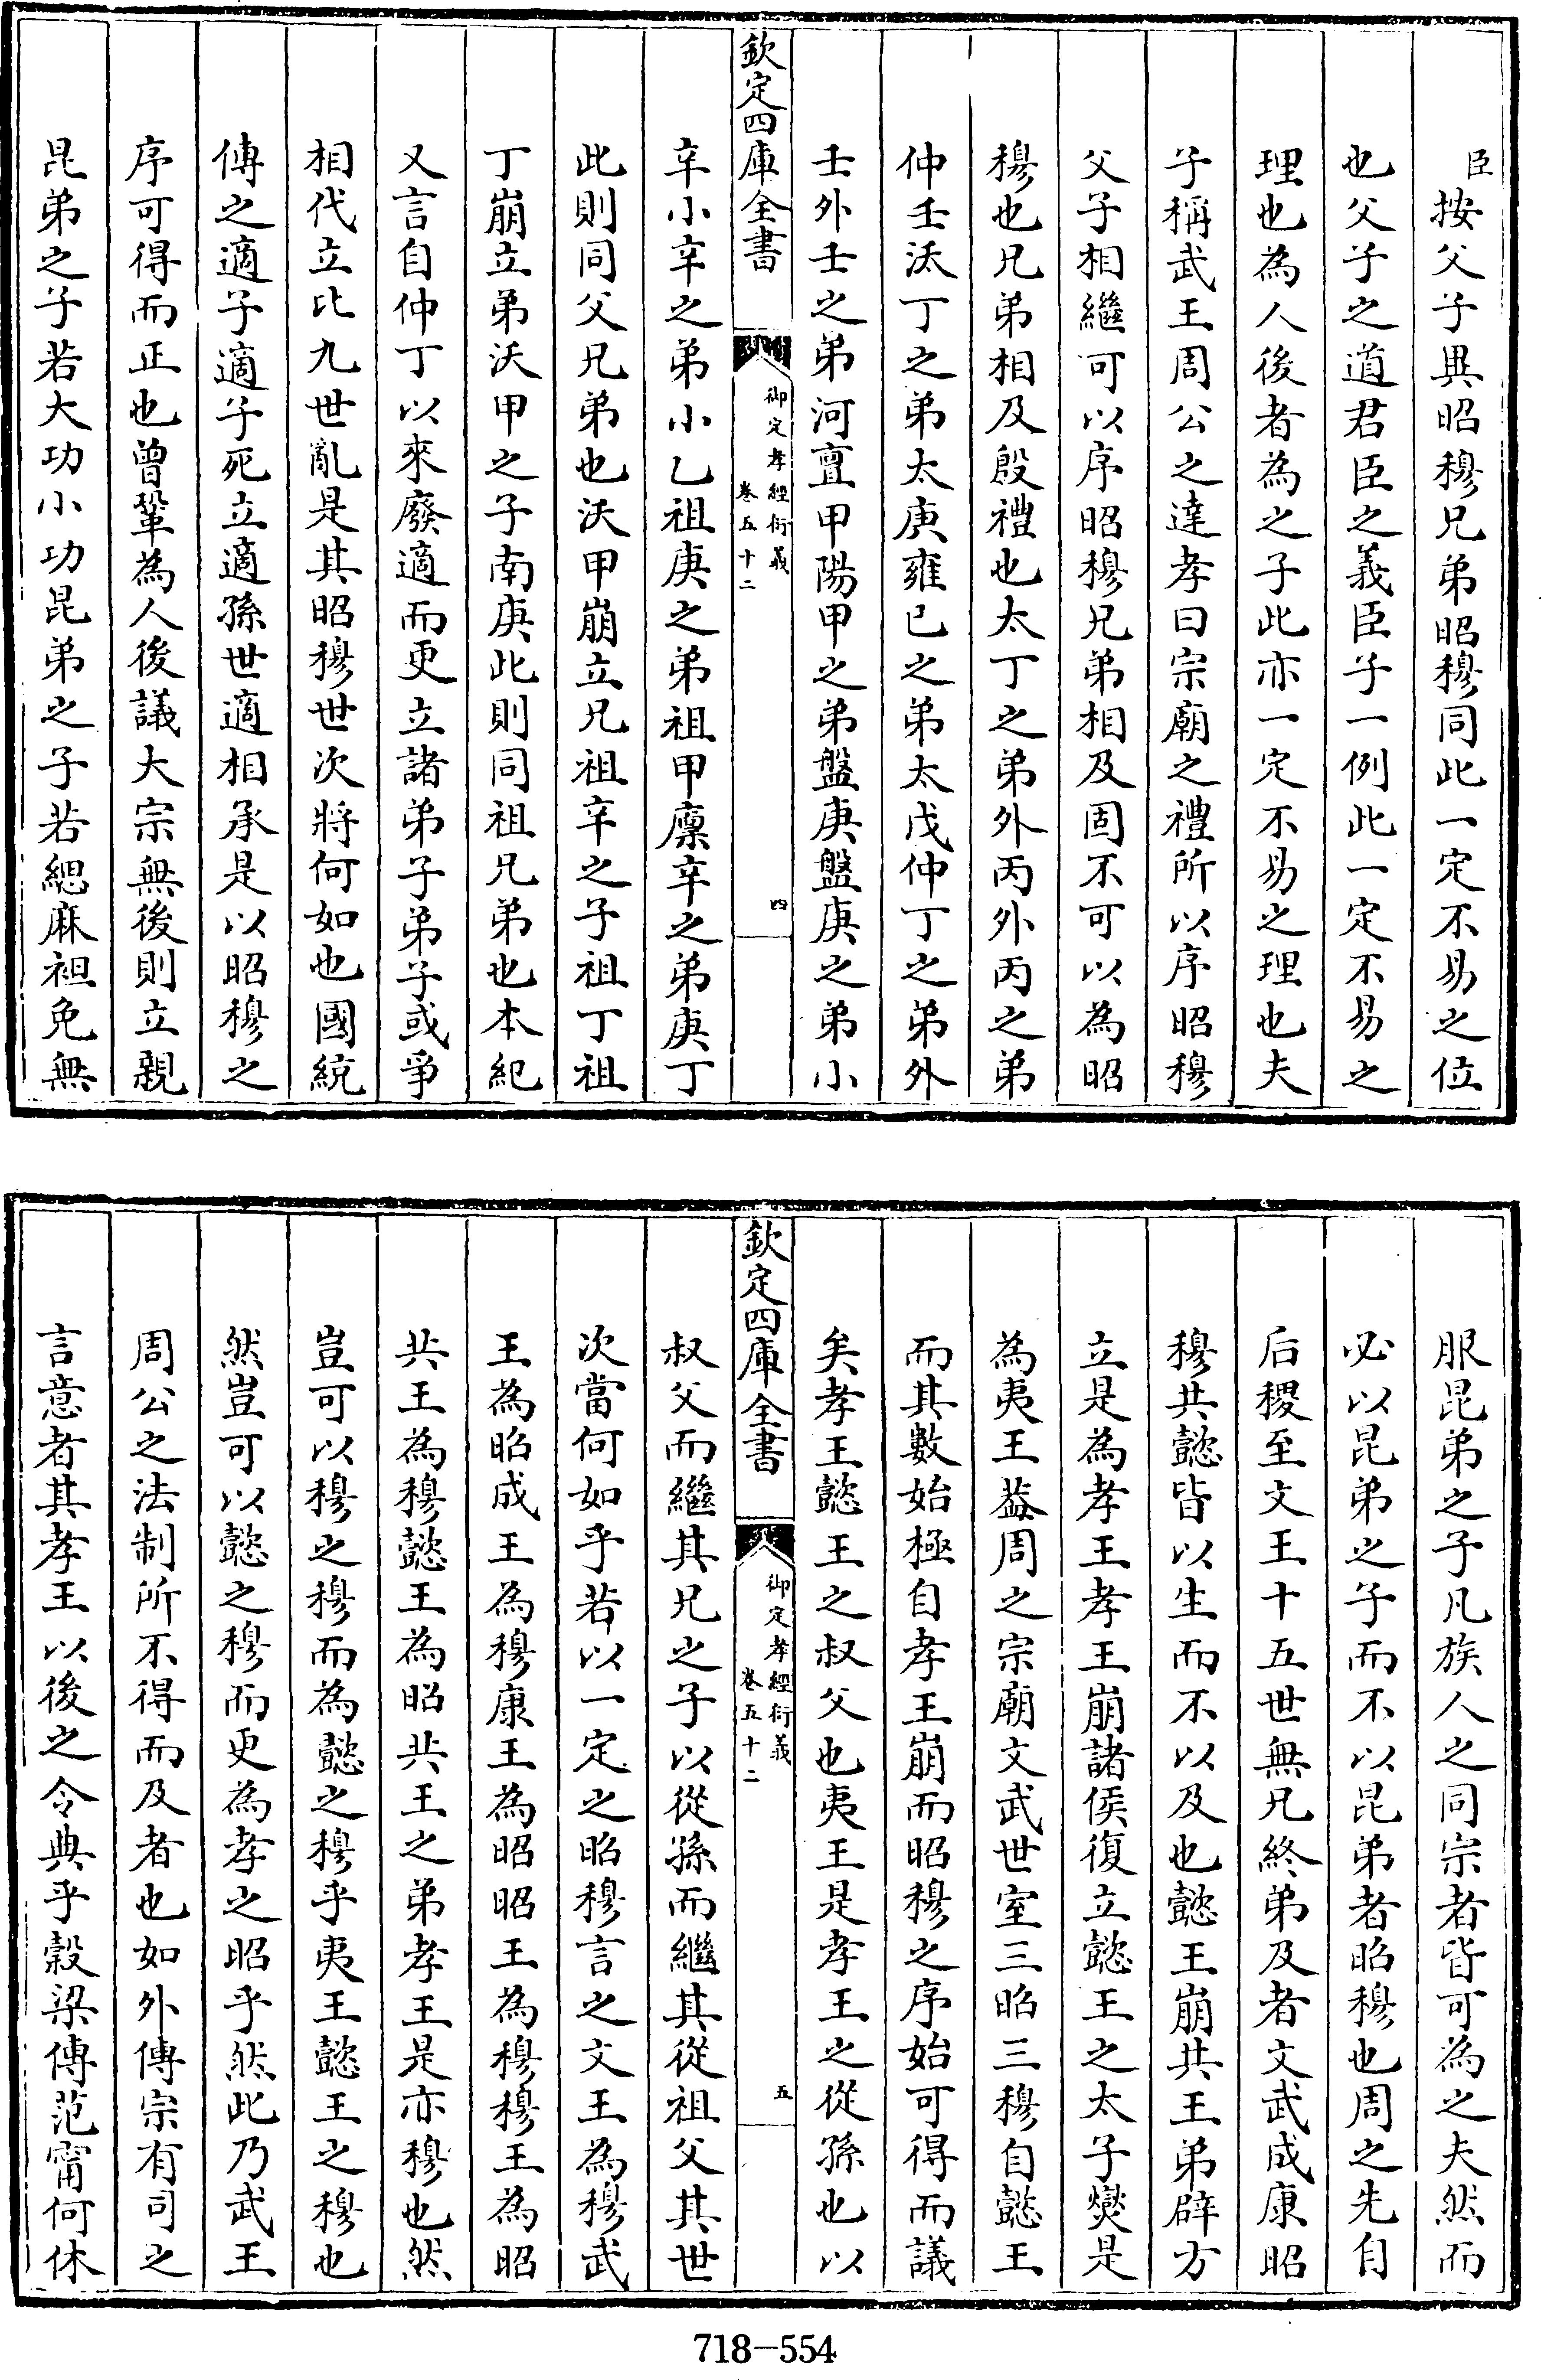 臣按父子異昭穆兄弟昭穆同此一定不易之位
也父子之道君臣之義臣子一例此一定不易之
理也為人後者為之子此亦一定不易之理也夫
子稱武王周公之達孝曰宗廟之禮所以序昭穆
父子相繼可以序昭穆兄弟相及固不可以為昭
穆也兄弟相及殷禮也太丁之弟外丙外丙之弟
仲壬沃丁之弟太庚雍已之弟太戊仲丁之弟外
壬外壬之弟河亶甲陽甲之弟盤庚盤庚之弟小
欽定四庫全書
御定孝經衍義
卷五十二
四
辛小辛之弟小乙祖庚之弟祖甲廪辛之弟庚丁
此則同父兄弟也沃甲崩立兄祖辛之子祖丁祖
丁崩立弟沃甲之子南庚此則同祖兄弟也本紀
又言自仲丁以來廢適而更立諸弟子弟子或爭
相代立比九世亂是其昭穆世次將何如也國統
傳之適子適子死立適孫世適相承是以昭穆之
序可得而正也曾鞏為人後議大宗無後則立親
昆弟之子若大功小功昆弟之子若緦麻袒免無
服昆弟之子凡族人之同宗者皆可為之夫然而
必以昆弟之子而不以昆弟者昭穆也周之先自
后稷至文王十五世無兄終弟及者文武成康昭
穆共懿皆以生而不以及也懿王崩共王弟辟方
立是為孝王孝王崩諸侯復立懿王之太子燮是
為夷王葢周之宗廟文武世室三昭三穆自懿王
而其數始極自孝王崩而昭穆之序始可得而議
矣孝王懿王之叔父也夷王是孝王之從孫也以
欽定四庫全書
御定孝經衍義
卷五十二
五
叔父而繼其兄之子以從孫而繼其從祖父其世
次當何如乎若以一定之昭穆言之文王為穆武
王為昭成王為穆康王為昭昭王為穆穆王為昭
共王為穆懿王為昭共王之弟孝王是亦穆也然
豈可以穆之穆而為懿之穆乎夷王懿王之穆也
然豈可以懿之穆而更為孝之昭乎然此乃武王
周公之法制所不得而及者也如外傳宗有司之
言意者其孝王以後之令典乎榖梁傳范甯何休
718—554